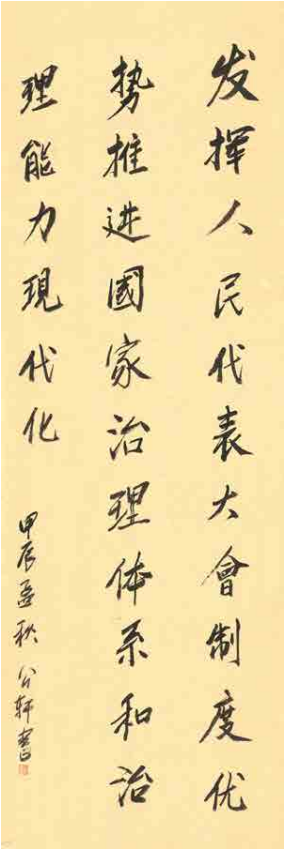 发挥人民代表大會制度优
势推进國家治理体系和治
理能力現代化
甲辰孟秋 公轩書